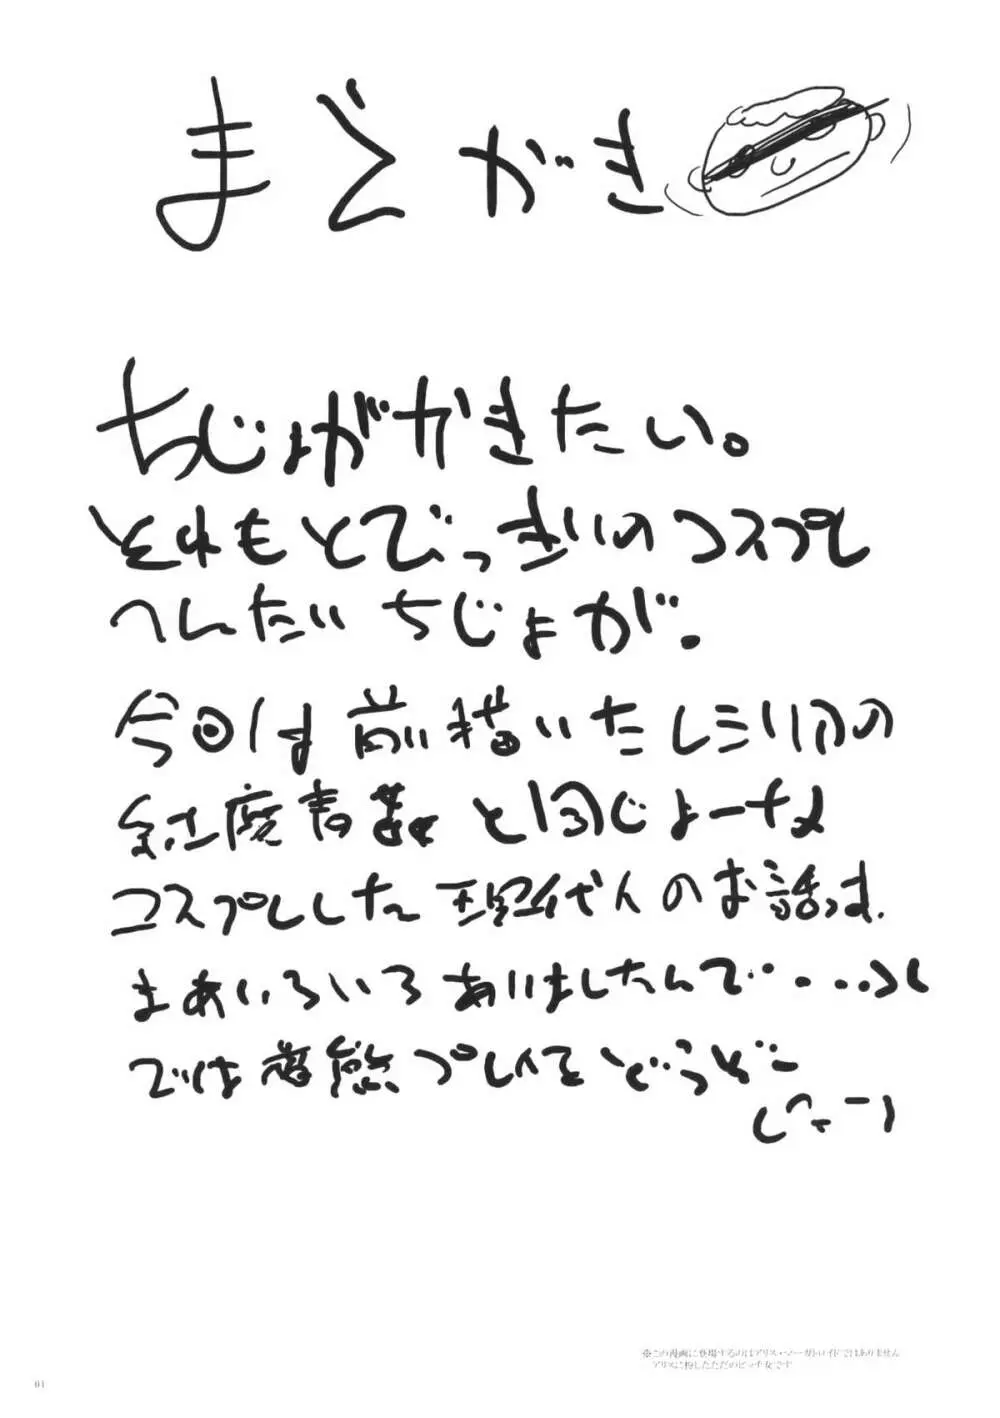 まえがき
ちじょがかきたい。
それもとびっきりのコスプレ
へんたいちじょが。
今回は前描いたレミリアの
と同じよーな
コスプレした現代人のお話っす。
まあいろいろありましたんで・・・・
では プレイをどうぞー
※この漫画に登場するのはアリス・マーガトロイドではありません
アリスに扮したただのビッチ女です
01